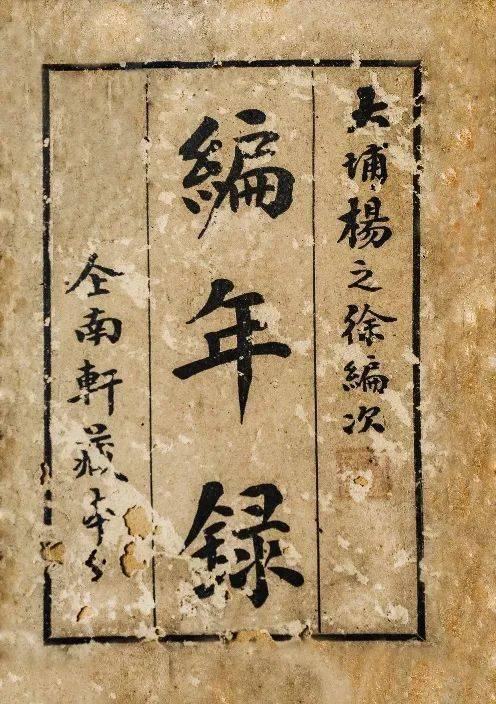 大埔楊之徐編次
編年録
仝南軒藏本